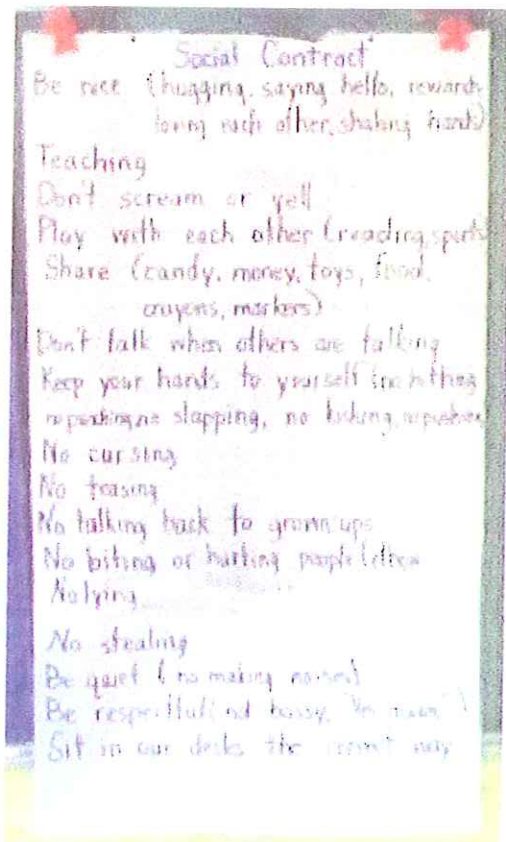 "Social Contract"
Be nice (hugging, saying hello, rewards
loving each other, shaking hands)
Teaching
Don't scream or yell
Play with each other (reading, sports
Share (candy, money, toys, food,
crayons, markers)
Don't talk when others are talking
Keep your hands to yourself (no hitting
no slapping, no kicking,
No cursing
No teasing
No talking back to grown ups
No biting or hurting people
No lying
No stealing
Be quiet (no making noises)
Be respectful
Sit in our desks the correct way